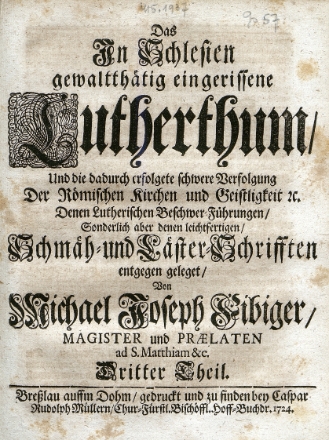 Das
In Schlesien
gewaltthätig eingerissene
Lutherthum/
Und die dadurch erfolgete schwere Verfolgung
Der Römischen Kirchen und Geistligkeit ꝛc.
Denen Lutherischen Beschwer-Führungen/
Sonderlich aber denen leichtfertigen/
Schmäh-und Läster-Schrifften
entgegen geleget/
Von
Michael Joseph Fibiger/
MAGISTER und PRÆLATEN
ad S. Matthiam &c.
Dritter Theil.
Breßlau auffm Dohm/ gedruckt und zu finden bey Caspar
Rudolph Müllern/ Chur-Fürstl. Bischöffl. Hoff-Buchdr. 1724.